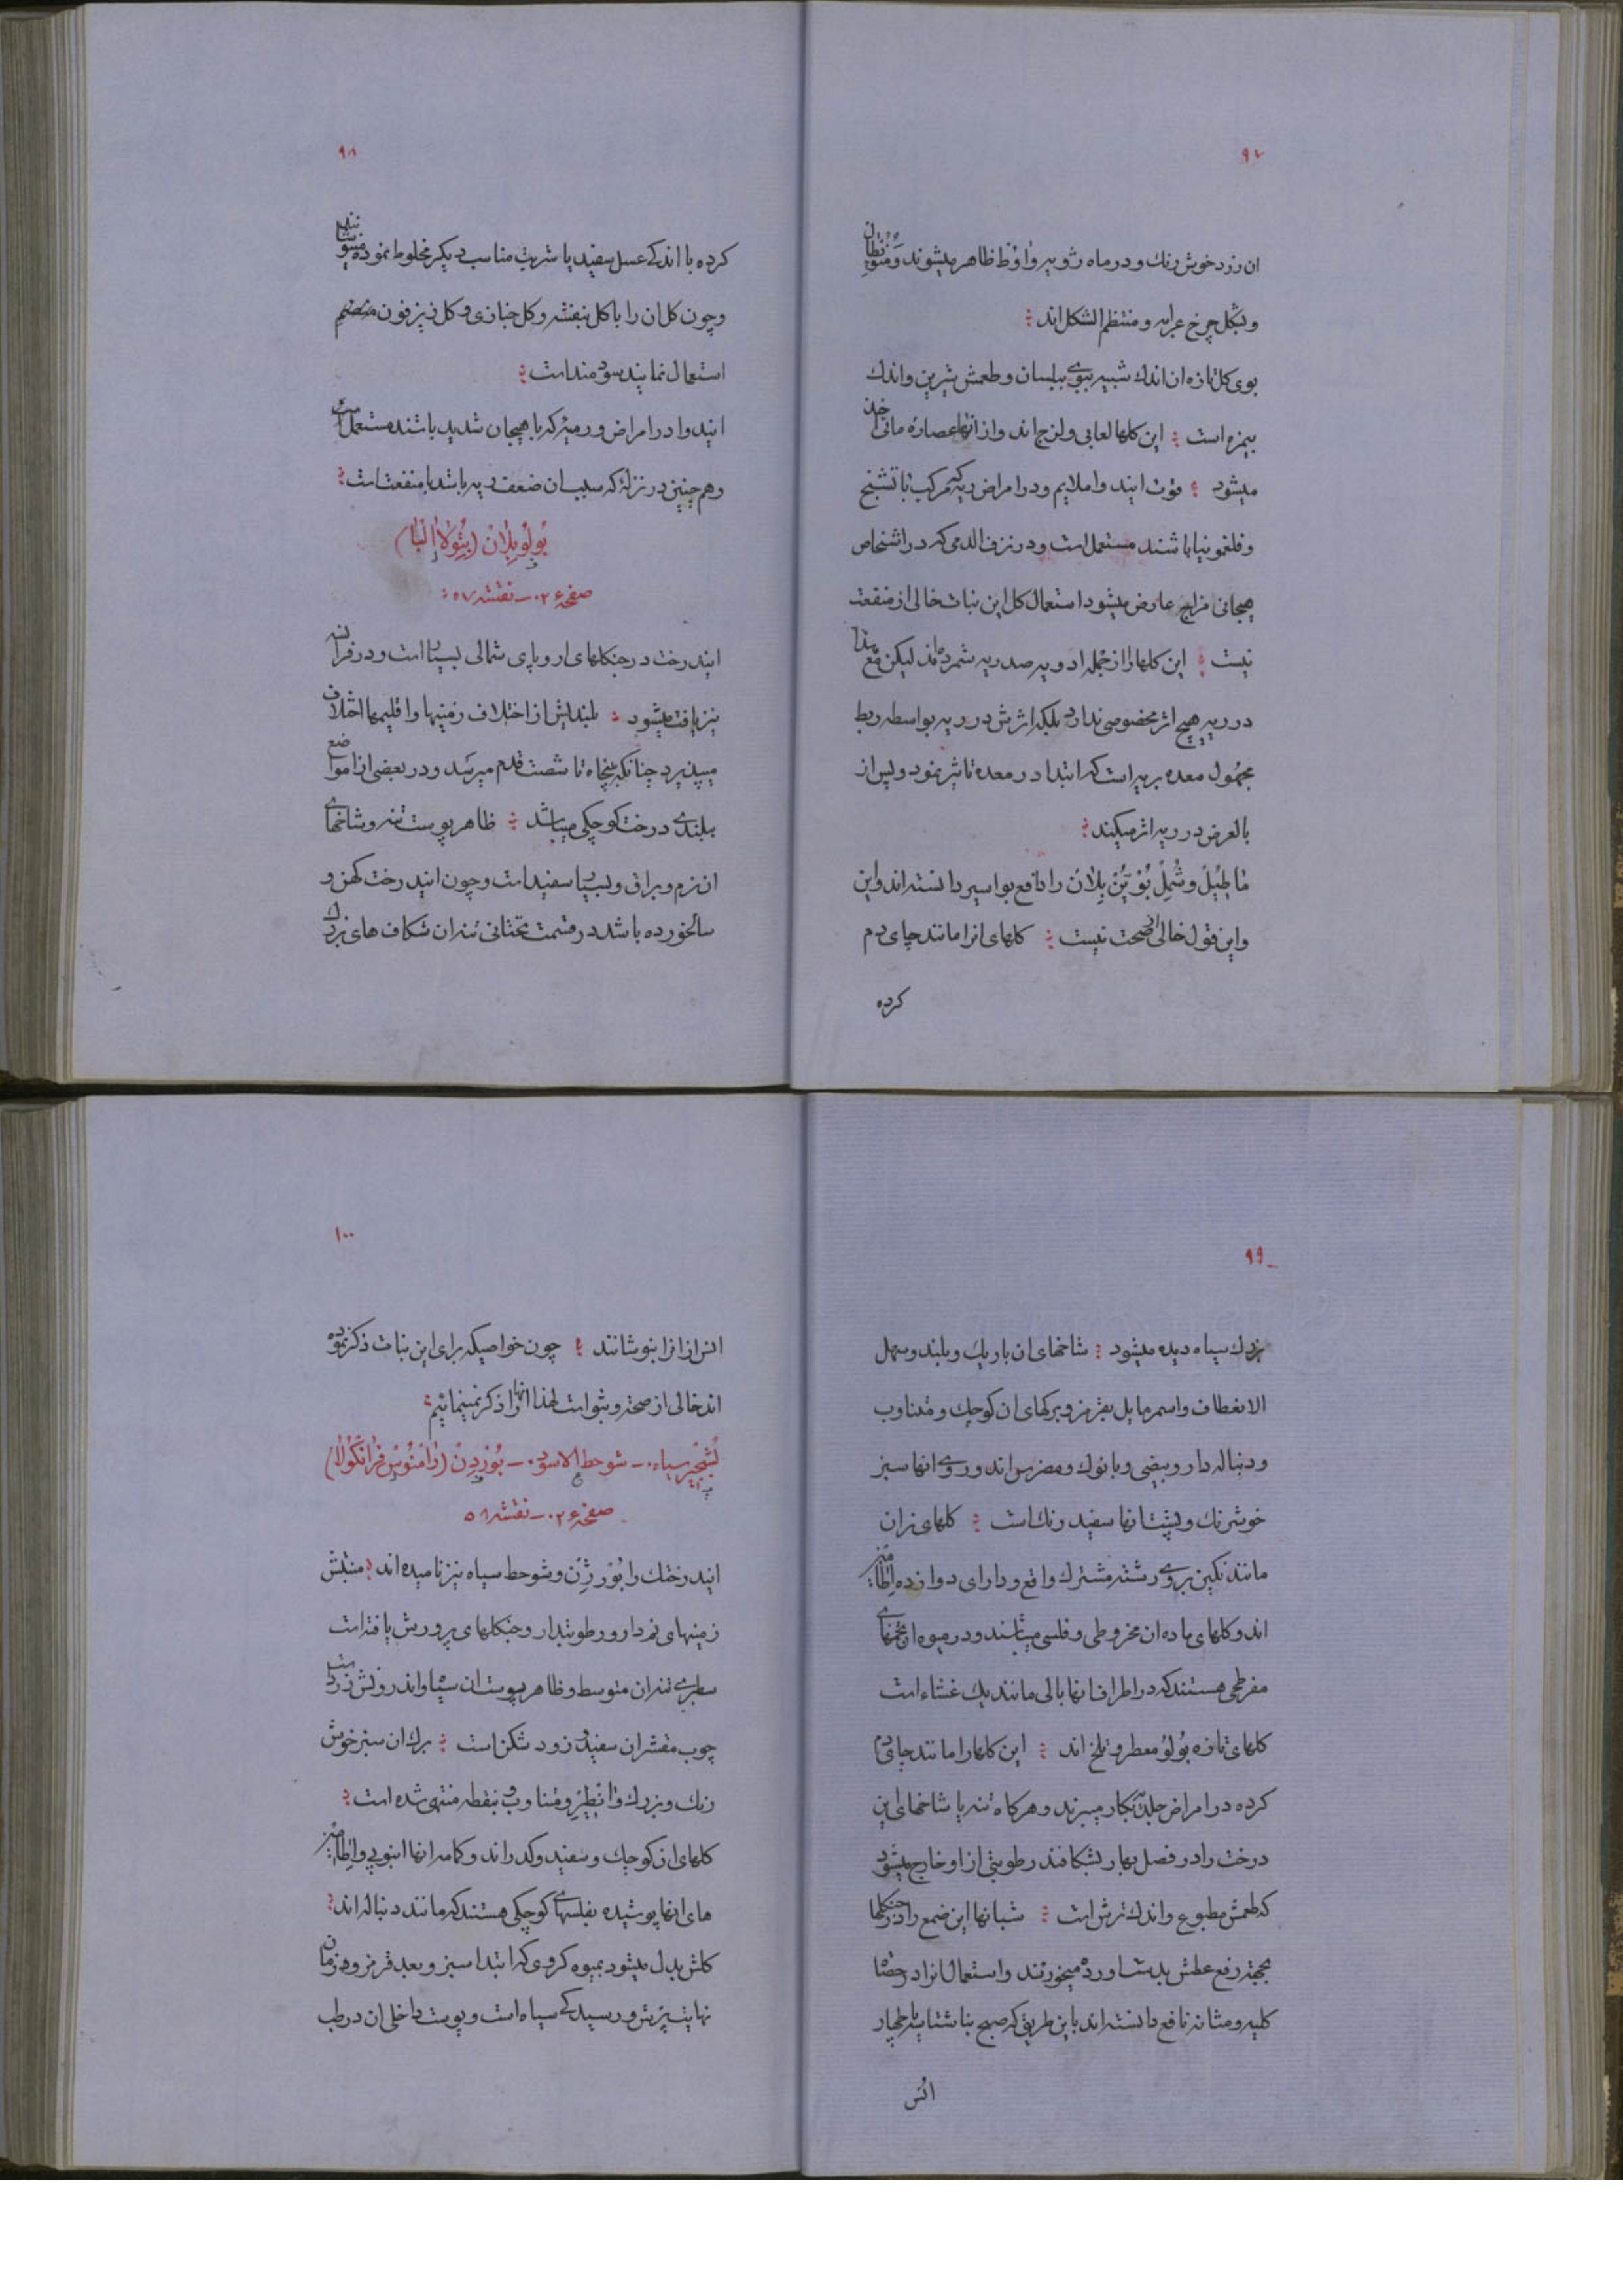 ۹۷
ان زرد خوش رنك و در ماه ژویه و اوط ظاهر میشوند و
و بشکل چرخ عرابه و منتظم الشکل اند
بوی کل تازه ان اندك شبیه ببوی بیلسان و طعمش شیرین و اندك
بیمزه است این کلها لعابی و لزج اند و از انها عصارهٔ مائی اخذ
میشود قوت ایندوا ملایم و در امراض ریه که مرکب با تشنج
و فلغمونیا باشند مستعمل است و در نزف الدمی که در اشخاص
هیجانی مزاج عارض میشود استعمال کل این نبات خالی از منفعت
نیست این کلها را از جمله ادویه صدریه شمرده اند لیکن مع هذا
در ریه هیچ اثر مخصوصی ندارد بلکه اثرش در ریه بواسطه ربط
معده بریه است که ابتدا در معده تاثیر نمود و پس از
بالعرض در ریه اثر میکند
و بلان را دافع بواسیر دانسته اند و این
و این قول خالی از صحت نیست کلهای انرا مانند چای دم
کرده
۹۸
کرده با اندکے عسل سفید یا شربت مناسب دیکر مخلوط نموده مینوشانند
و چون کل ان را با کل بنفشه و کل خبازی و کل زیزفون
استعمال نمایند سودمند است
ایندوا در امراض ورمیه که با هیجان شدید باشند مستعمل است
و هم چنین در نزلهٔ که سبب ان ضعف ریه باشد با منفعت است
بُولُو بِلان (بِتُولا اَلبا)
صفحه ۲۰۶ ـ نقشه ۵۷
ایندرخت در جنکلهای اروپای شمالی بسیار است و در فرانسه
نیز یافت میشود بلندیش از اختلاف زمینها و اقلیمها اختلاف
میپذیرد چنانکه بپنجاه تا شصت قدم میرسد و در بعضی از مواضع
ببلندے درخت کوچکی میباشد ظاهر پوست تنه و شاخهاے
ان نرم و براق و بسیار سفید است و چون ایندرخت کهن و
سالخورده باشد در قسمت تحتانی تنه ان شکاف های بزرك
۹۹
بزرك سیاه دیده میشود شاخهای ان باریك و بلند و سهل
الانعطاف و اسمر مایل بقرمز و برکهای ان کوچك و متناوب
و دنباله دار و بیضی و با نوك و مضرس اند و روے انها سبز
خوش رنك و پشت انها سفید رنك است کلهای نر ان
مانند نکین بروے رشته مشترك واقع و دارای دوازده
اند و کلهای ماده ان مخروطی و فلسی میباشند و در میوه ان تخمهاے
مفرطحی هستند که در اطراف انها بالی مانند یك غشاء است
کلهای تازه بُولُو معطر و تلخ اند این کلها را مانند چای دم
کرده در امراض جلدیه بکار میبرند و هر کاه تنه یا شاخهای این
درخت را در فصل بهار بشکافند رطوبتی از او خارج میشود
که طعمش مطبوع و اندك ترش است شبانها این صمغ را در جنکلها
بجهة رفع عطش بدست اورده میخورند و استعمال انرا در حصاة
کلیه و مثانه نافع دانسته اند باین طریق که صبح بناشتا سه یا چهار
انس
۱۰۰
انس از انرا بنوشانند چون خواصیکه برای این نبات ذکر نموده
اند خالی از صحة و ثبوت است لهذا انها را ذکر نمینمائیم
سیاه ـ شوحط الاسود ـ بُورْدِن (رامنوس فرانکولا)
صفحه ۲۰۶ ـ نقشه ۵۸
ایندرختك را بُورژِن و شوحط سیاه نیز نامیده اند منبتش
زمینهای نمدار و رطوبتدار و جنکلهای پرورش یافته است
سطبرے تنه ان متوسط و ظاهر پوست ان سیاه و اندرونش زرد است
چوب مقشر ان سفید و زود شکن است برك ان سبز خوش
رنك و بزرك و و متناوب و بنقطه منتهی شده است
کلهای ان کوچك و سفید و کدر اند و کاسه انها انبوبی و
های انها پوشیده بفلسهاے کوچکی هستند که مانند دنباله اند
کلش بدل میشود بمیوه کروی که ابتدا سبز و بعد قرمز و در زمان
نهایت پزش و رسیدکے سیاه است و پوست داخلی ان در طب